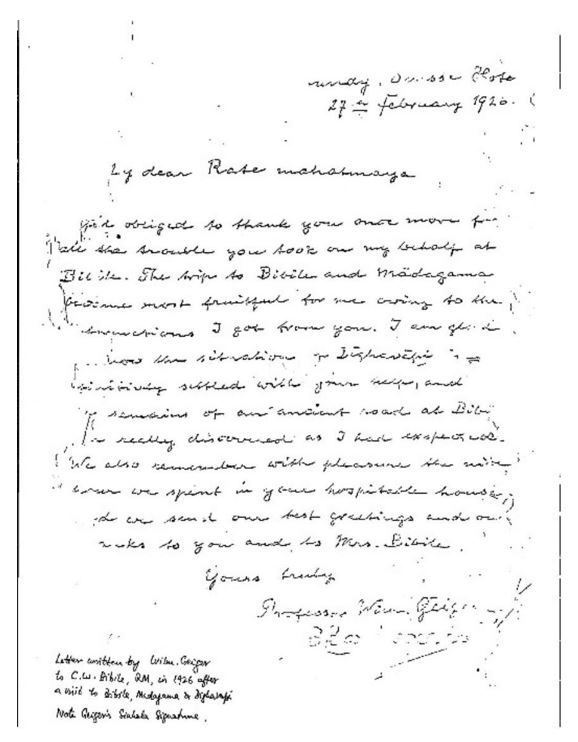 27th February 1926.
dear Rate mahatmaya
obliged to thank you once more for
all the trouble you took on my behalf at
Bibile. The trip to Bibile and Mädagama
became most fruitful for me owing to the
I got from you. I am glad
how the situation of Dighavāpi is
settled with your help, and
remains of an ancient road at Bibi
really discovered as I had expected.
We also remember with pleasure the nice
we spent in your hospitable house,
we send our best greetings and
to you and to Mrs. Bibile.
Yours truly
Professor Wilm. Geiger
Letter written by Wilm. Geiger
to C.W. Bibile, RM, in 1926 after
a visit to Bibile, Medagama & Dighavapi
Note Geiger's Sinhala Signature.